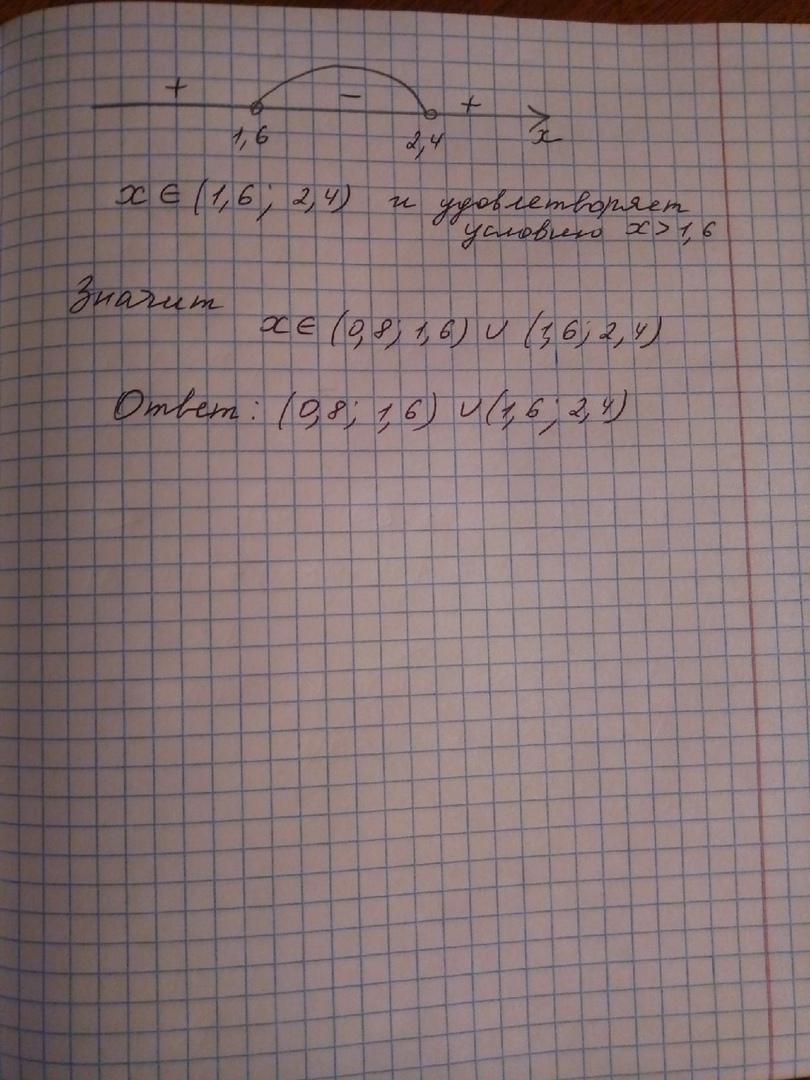 + − +
1,6 2,4 x
x ∈ (1,6; 2,4) и удовлетворяет
условию x > 1,6
Значит
x ∈ (0,8; 1,6) ∪ (1,6; 2,4)
Ответ: (0,8; 1,6) ∪ (1,6; 2,4)